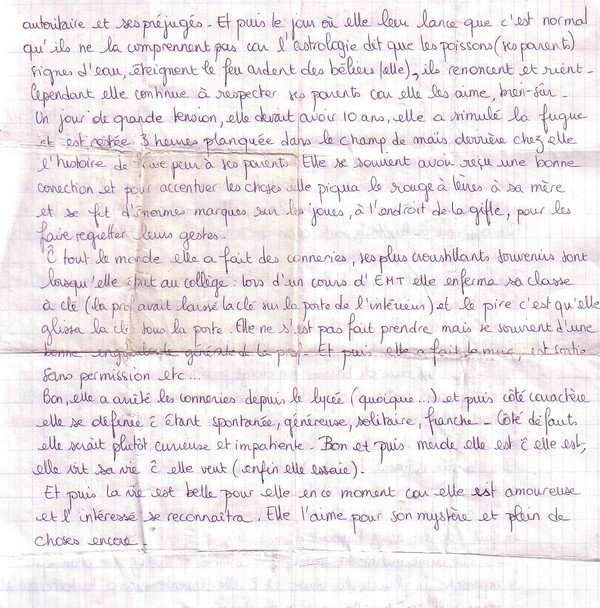 autoritaire et ses préjugés. Et puis le jour où elle leur lance que c'est normal
qu'ils ne la comprennent pas car l'astrologie dit que les poissons (ses parents)
signes d'eau, éteignent le feu ardent des béliers (elle), ils renoncent et rient.
Cependant elle continue à respecter ses parents car elle les aime, bien-sûr.
Un jour de grande tension, elle devait avoir 10 ans, elle a simulé la fugue
et est restée 3 heures planquée dans le champ de maïs derrière chez elle
l'histoire de faire peur à ses parents. Elle se souvient avoir reçu une bonne
correction et pour accentuer les choses elle piqua le rouge à lèvres à sa mère
et se fit d'énormes marques sur les joues, à l'endroit de la gifle, pour les
faire regretter leurs gestes.
C̄ tout le monde elle a fait des conneries, ses plus croustillants souvenirs sont
lorsqu'elle était au collège : lors d'un cours d'EMT elle enferma sa classe
à clé (la prof avait laissé la clé sur la porte de l'intérieur) et le pire c'est qu'elle
glissa la clé sous la porte. Elle ne s'est pas fait prendre mais se souvient d'une
bonne engueulade générale de la prof. Et puis elle a fait le mur, est sortie
sans permission etc...
Bon, elle a arrêté les conneries depuis le lycée (quoique...) et puis côté caractère
elle se définie c̄ étant spontanée, généreuse, solitaire, franche. Côté défauts
elle serait plutôt curieuse et impatiente. Bon et puis merde elle est c̄ elle est,
elle vit sa vie c̄ elle veut (enfin elle essaie).
Et puis la vie est belle pour elle en ce moment car elle est amoureuse
et l'intéressé se reconnaîtra. Elle l'aime pour son mystère et plein de
choses encore.